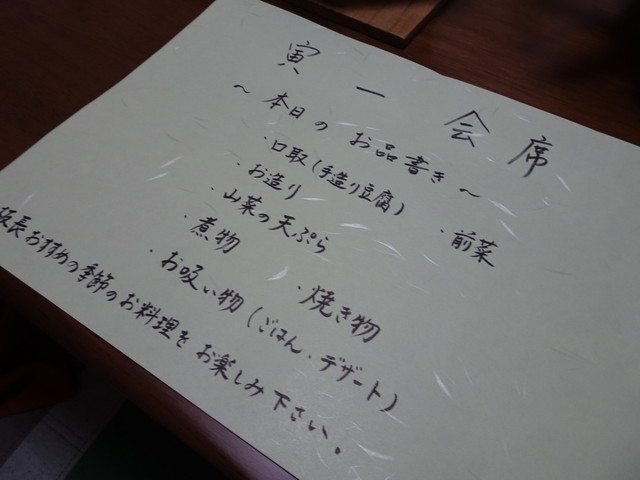 寅一会席
～本日のお品書き～
・口取(手造り豆腐)
・前菜
・お造り
・山菜の天ぷら
・煮物
・焼き物
・お吸い物(ごはん、デザート)
板長おすすめの季節のお料理をお楽しみ下さい。